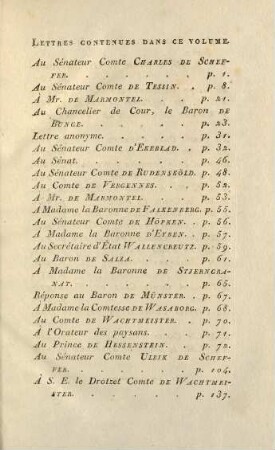 LETTRES CONTENUES DANS CE VOLUME.
Au Sénateur Comte CHARLES DE SCHEF-
FER. . . . . . . p. 1.
Au Sénateur Comte DE TESSIN. . p. 8.
À MR. DE MARMONTEL. . . p. 21.
Au Chancelier de Cour, le Baron DE
BUNGE. . . . . . p. 23.
Lettre anonyme. . . . . p. 31.
Au Sénateur Comte D'EKEBLAD. . p. 32.
Au Sénat. . . . . . p. 46.
Au Sénateur Comte DE RUDENSKÖLD. p. 48.
Au Comte DE VERGENNES. . . p. 52.
À MR. DE MARMONTEL. . . p. 53.
A Madame la Baronne DE FALKENBERG. p. 55.
Au Sénateur Comte DE HÖPKEN. . p. 56.
À Madame la Baronne D'EYBEN. . p. 57.
Au Secrétaire d'État WALLENCREUTZ. p. 59.
Au Baron DE SALZA. . . . p. 61.
A Madame la Baronne DE STJERNGRA-
NAT. . . . . . p. 65.
Réponse au Baron DE MÜNSTER. . p. 67.
À Madame la Comtesse DE WASABORG. p. 68.
Au Comte DE WACHTMEISTER. . p. 70.
À l'Orateur des paysans. . . p. 71.
Au Prince DE HESSENSTEIN. . p. 72.
Au Sénateur Comte ULRIK DE SCHEF-
FER. . . . . . p. 104.
À S. E. le Drotzet Comte DE WACHTMEI-
STER. . . . . . p. 137.